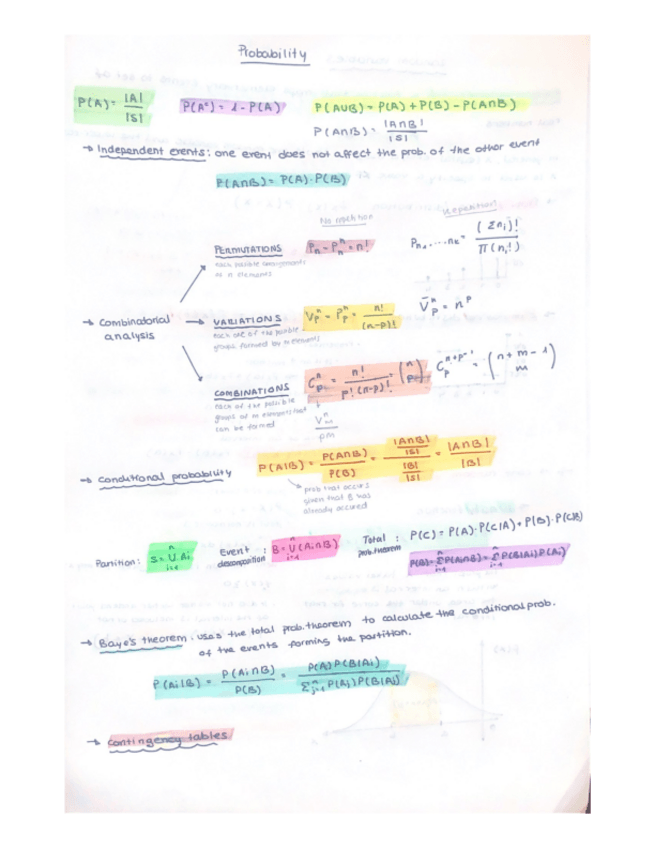 Probability
P(A) = |A| / |S|   P(Aᶜ) = 1 - P(A)   P(A∪B) = P(A) + P(B) - P(A∩B)
P(A∩B) = |A∩B| / |S|
→ Independent events: one event does not affect the prob. of the other event
P(A∩B) = P(A) · P(B)
No repetition   repetition!
PERMUTATIONS   Pₙ = Pₙⁿ = n!   Pₙ₁....ₙₖ = (Σnᵢ)! / Π(nᵢ!)
each possible arrangements
as n elements
→ Combinatorial analysis
→ VARIATIONS   Vₚⁿ = Pₚⁿ = n! / (n-p)!   V̄ₚⁿ = nᵖ
each one of the possible
groups formed by m elements
COMBINATIONS   Cₚⁿ = n! / p!(n-p)! = (n p)   Cₚⁿ⁺ᵖ⁻¹ = (n+m-1 m)
each of the possible
groups of m elements that
can be formed
Vₘⁿ
pm
→ Conditional probability   P(A|B) = P(A∩B) / P(B) = (|A∩B| / |S|) / (|B| / |S|) = |A∩B| / |B|
prob that A occurs
given that B has
already occured
Partition: S = ∪ⁿᵢ₌₁ Aᵢ   Event descomposition : B = ∪ⁿᵢ₌₁ (Aᵢ∩B)   Total prob. theorem : P(C) = P(A)·P(C|A) + P(B)·P(C|B)
P(B) = Σⁿᵢ₌₁ P(Aᵢ∩B) = Σⁿᵢ₌₁ P(B|Aᵢ) P(Aᵢ)
→ Baye's theorem: uses the total prob. theorem to calculate the conditional prob.
of the events forming the partition.
P(Aᵢ|B) = P(Aᵢ∩B) / P(B) = P(A) P(B|Aᵢ) / Σⁿⱼ₌₁ P(Aⱼ) P(B|Aⱼ)
→ Contingency tables